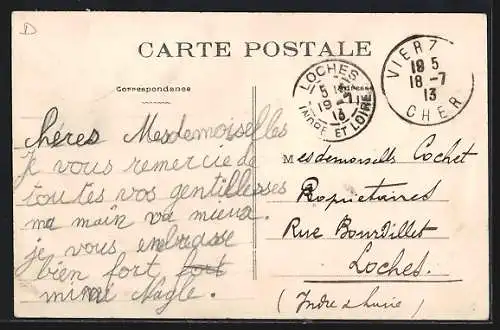 D
CARTE POSTALE
Correspondance
Adresse
LOCHES
5
19-7
13
INDRE ET LOIRE
VIERZ
18 5
18-7
13
CHER
Chères Mesdemoiselles
Je vous remercie de
toutes vos gentillesses
ma main va mieux.
je vous embrasse
bien fort fort
Nagle.
Mesdemoiselles Cochet
Propriétaires
Rue Bourdillet
Loches.
(Indre &